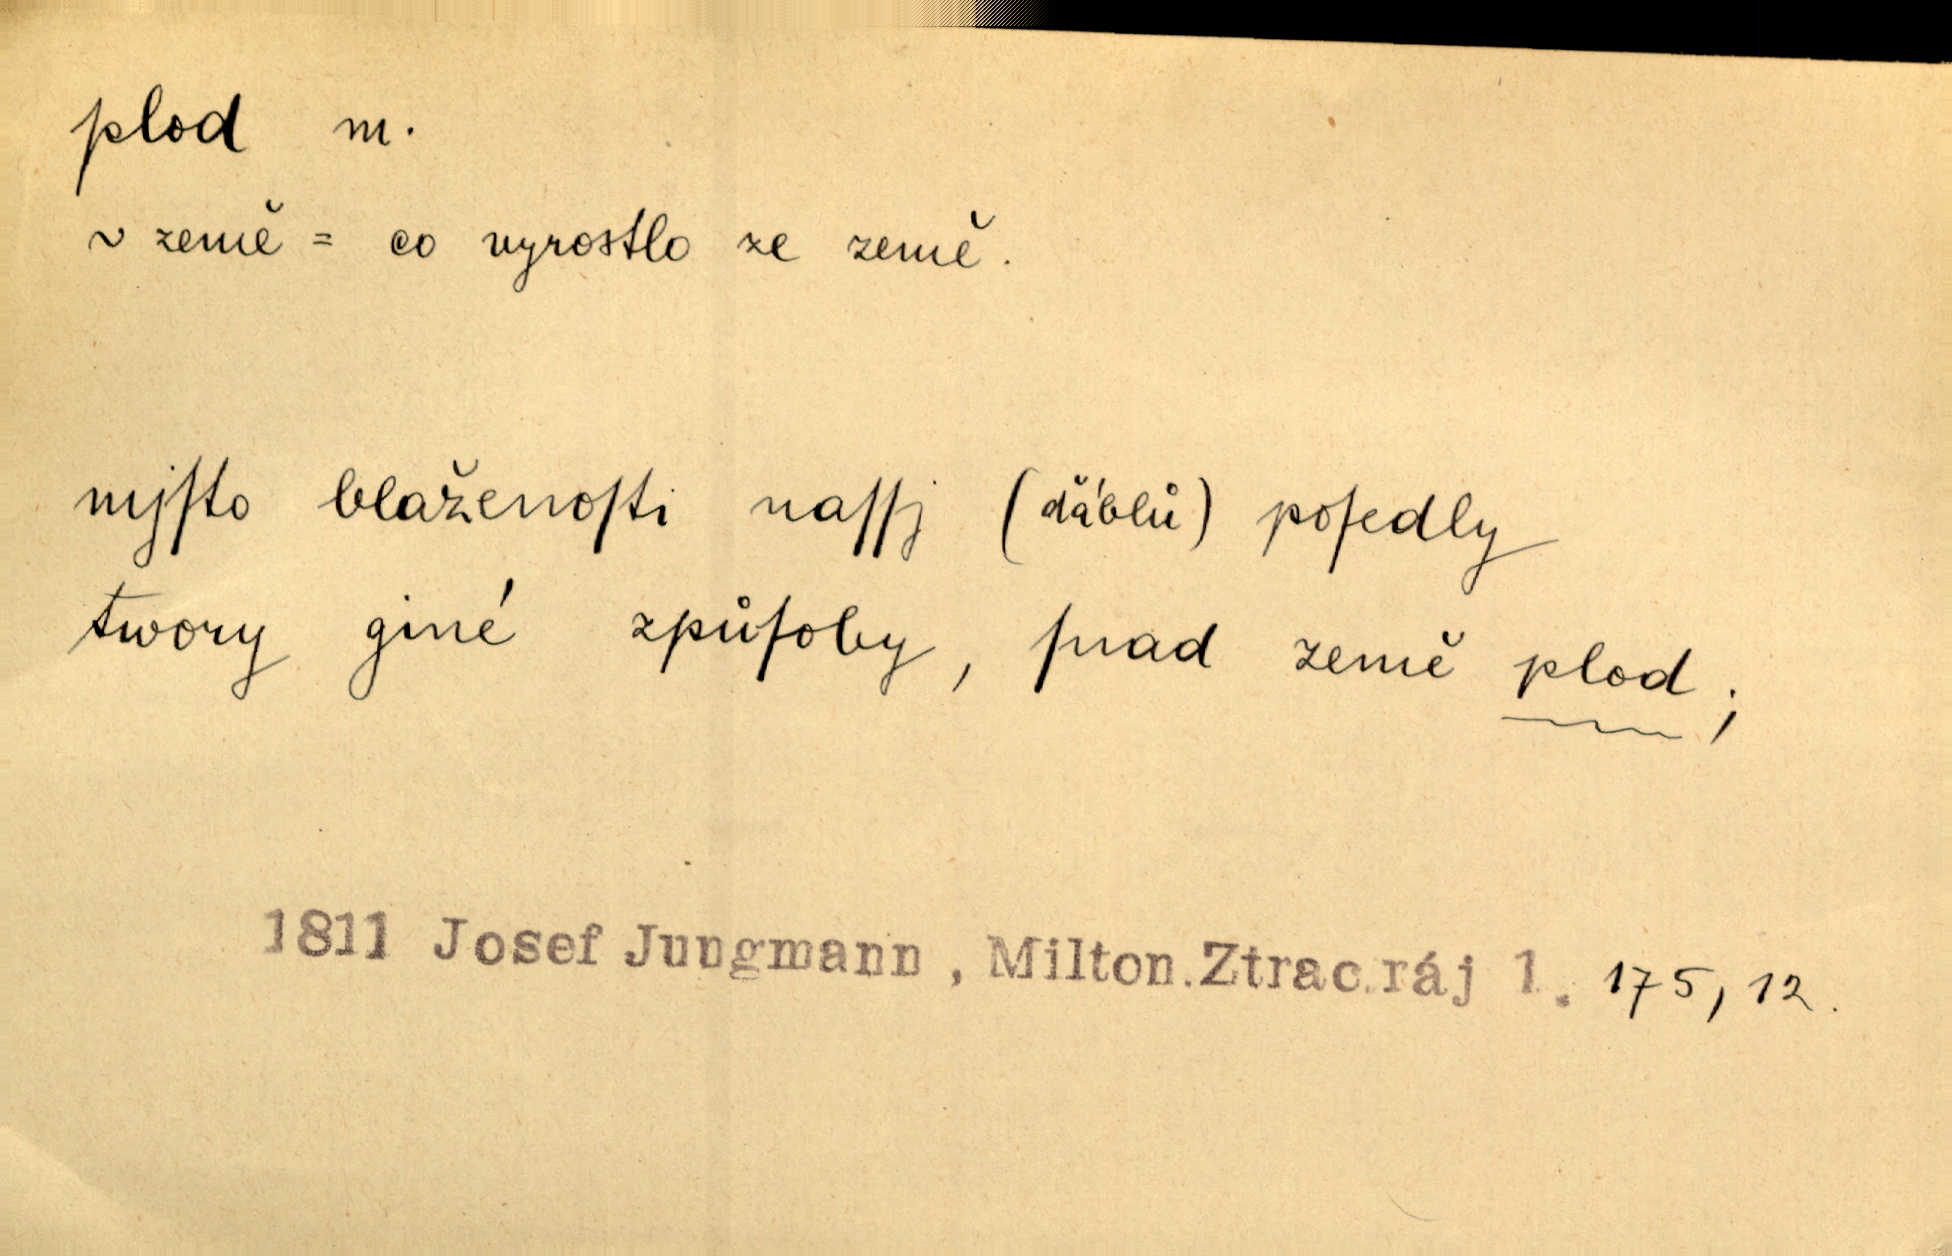 plod m.
~ země = co vyrostlo ze země.
mjſto blaženoſti naſſj (ďáblů) poſedly
twory giné způſoby, ſnad země plod;
1811 Josef Jungmann, Milton.Ztrac.ráj 1. 175, 12.